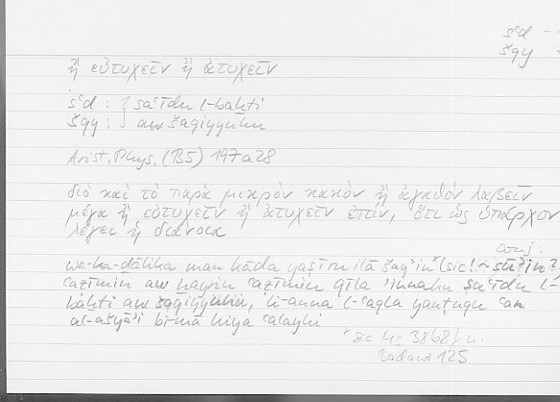 sʿd –
šqy
ἢ εὐτυχεῖν ἢ ἀτυχεῖν
sʿd : } saʿīdu l-baḫti
šqy : } aw šaqiyyuhu
Arist. Phys. (B5) 197a28
διὸ καὶ τὸ παρὰ μικρὸν κακὸν ἢ ἀγαθὸν λαβεῖν
μέγα ἢ εὐτυχεῖν ἢ ἀτυχεῖν ἐστίν, ὅτι ὡς ὑπάρχον
λέγει ἡ διάνοια
conj:
wa-ka-ḏālika man kāda yaṣīru ilā šayʾin* (sic! ~
ʿaẓīmin aw ḫayrin ʿaẓīmin qīla innahu saʿīdu l-
baḫti aw šaqiyyuhu, li-anna l-ʿaqla yanṭuqu ʿan
al-ašyāʾi bimā hiya ʿalayhi
* sic Ms 3868/
Badawi 125